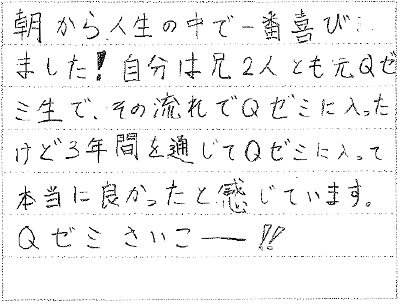 朝から人生の中で一番喜び
ました!自分は兄2人とも元Qゼ
ミ生で、その流れでQゼミに入った
けど3年間を通じてQゼミに入って
本当に良かったと感じています。
Qゼミさいこー!!